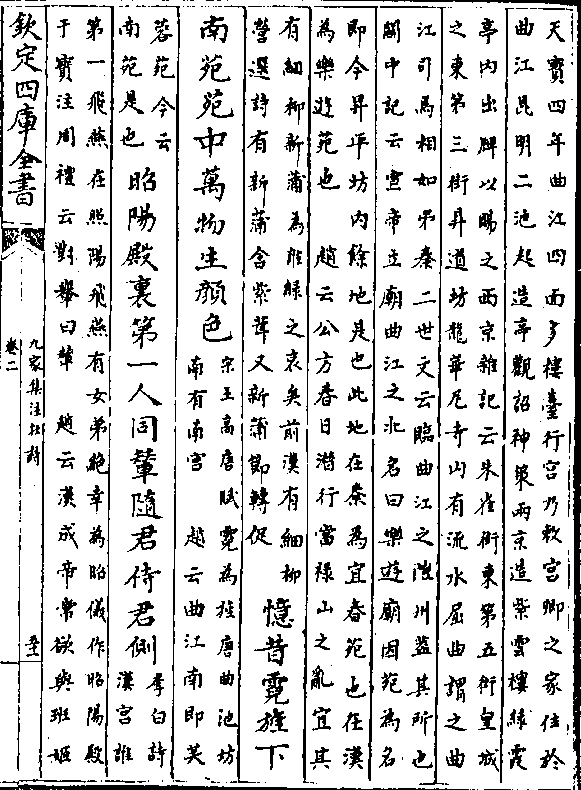 天寶四年曲江四面多樓臺行宮乃敕宮卿之家位於
曲江昆明二池起造亭觀詔神䇿兩京造紫雲樓綵霞
亭内出牌以賜之西京雜記云朱雀街東第五街皇城
之東第三街昇道坊龍華尼寺山有流水屈曲謂之曲
江司馬相如弔秦二世文云臨曲江之隑州葢其所也
關中記云宣帝立廟曲江之北名曰樂遊廟因苑為名
即今昇平坊内餘地是也此地在秦為宜春苑也在漢
為樂遊苑也　趙云公方春日潛行當禄山之亂宜其
有細柳新蒲為誰緑之哀矣前漢有細柳
營選詩有新蒲含紫茸又新蒲節轉促
憶昔霓旌下
南苑苑中萬物生顔色
宋玉高唐賦霓為旌唐曲池坊
南有南宫　趙云曲江南即芙
蓉苑今云
南苑是也
昭陽殿裏第一人同輦隨君侍君側
李白詩
漢宫誰
第一飛燕在照陽飛燕有女弟絶幸為昭儀作昭陽殿
于寳注周禮云對舉曰輦　趙云漢成帝常欲與班姬
欽定四庫全書
九家集注杜詩
卷二